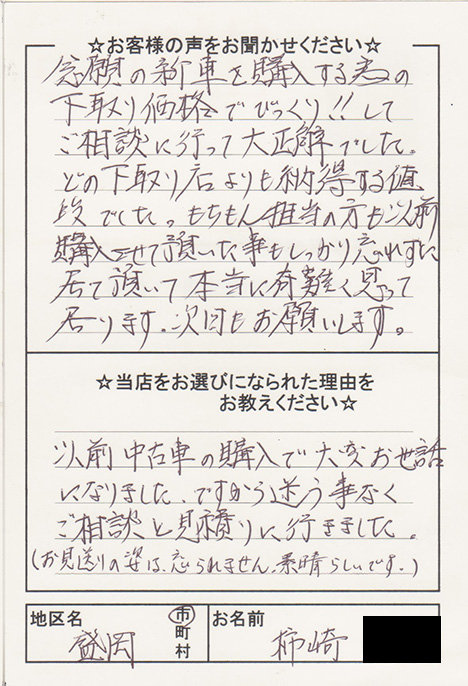 ☆お客様の声をお聞かせください☆
念願の新車を購入する為の
下取り価格でびっくり!!して
ご相談に行って大正解でした。
どの下取り店よりも納得する値
段でした。もちろん担当の方も以前
購入させて頂いた事もしっかり忘れずに
居て頂いて本当に有難く思って
居ります。次回もお願いします。
☆当店をお選びになられた理由を
お教えください☆
以前中古車の購入で大変お世話
になりました。ですから迷う事なく
ご相談と見積りに行きました。
(お見送りの姿は、忘られません、素晴らしいです。)
地区名 盛岡 市町村 お名前 柿崎